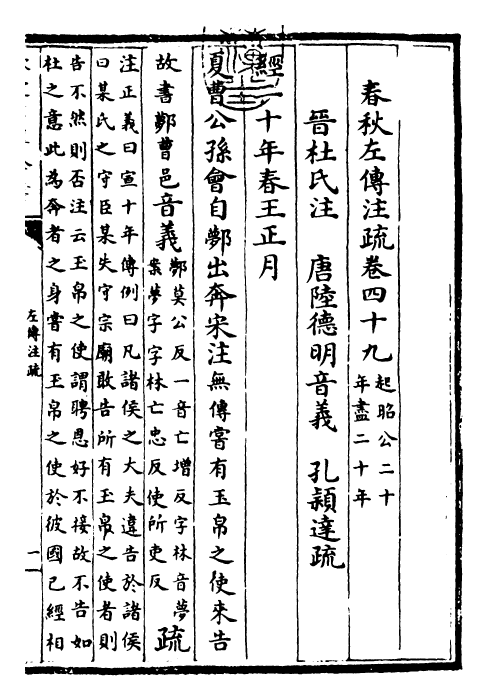 春秋左傳注疏卷四十九起昭公二十年盡二十年
晉杜氏注 唐陸德明音義 孔穎達疏
經二十年春王正月
夏曹公孫會自鄸出奔宋注無傳嘗有玉帛之使來告
故書鄸曹邑音義鄸莫公反一音亡增反字林音夢案夢字字林亡忠反使所吏反疏
注正義曰宣十年傳例曰凡諸侯之大夫違告於諸侯
曰某氏之守臣某失守宗廟敢告所有玉帛之使者則
告不然則否注云玉帛之使謂聘恩好不接故不告如
杜之意此為奔者之身嘗有玉帛之使於彼國已經相
左傳注疏
一